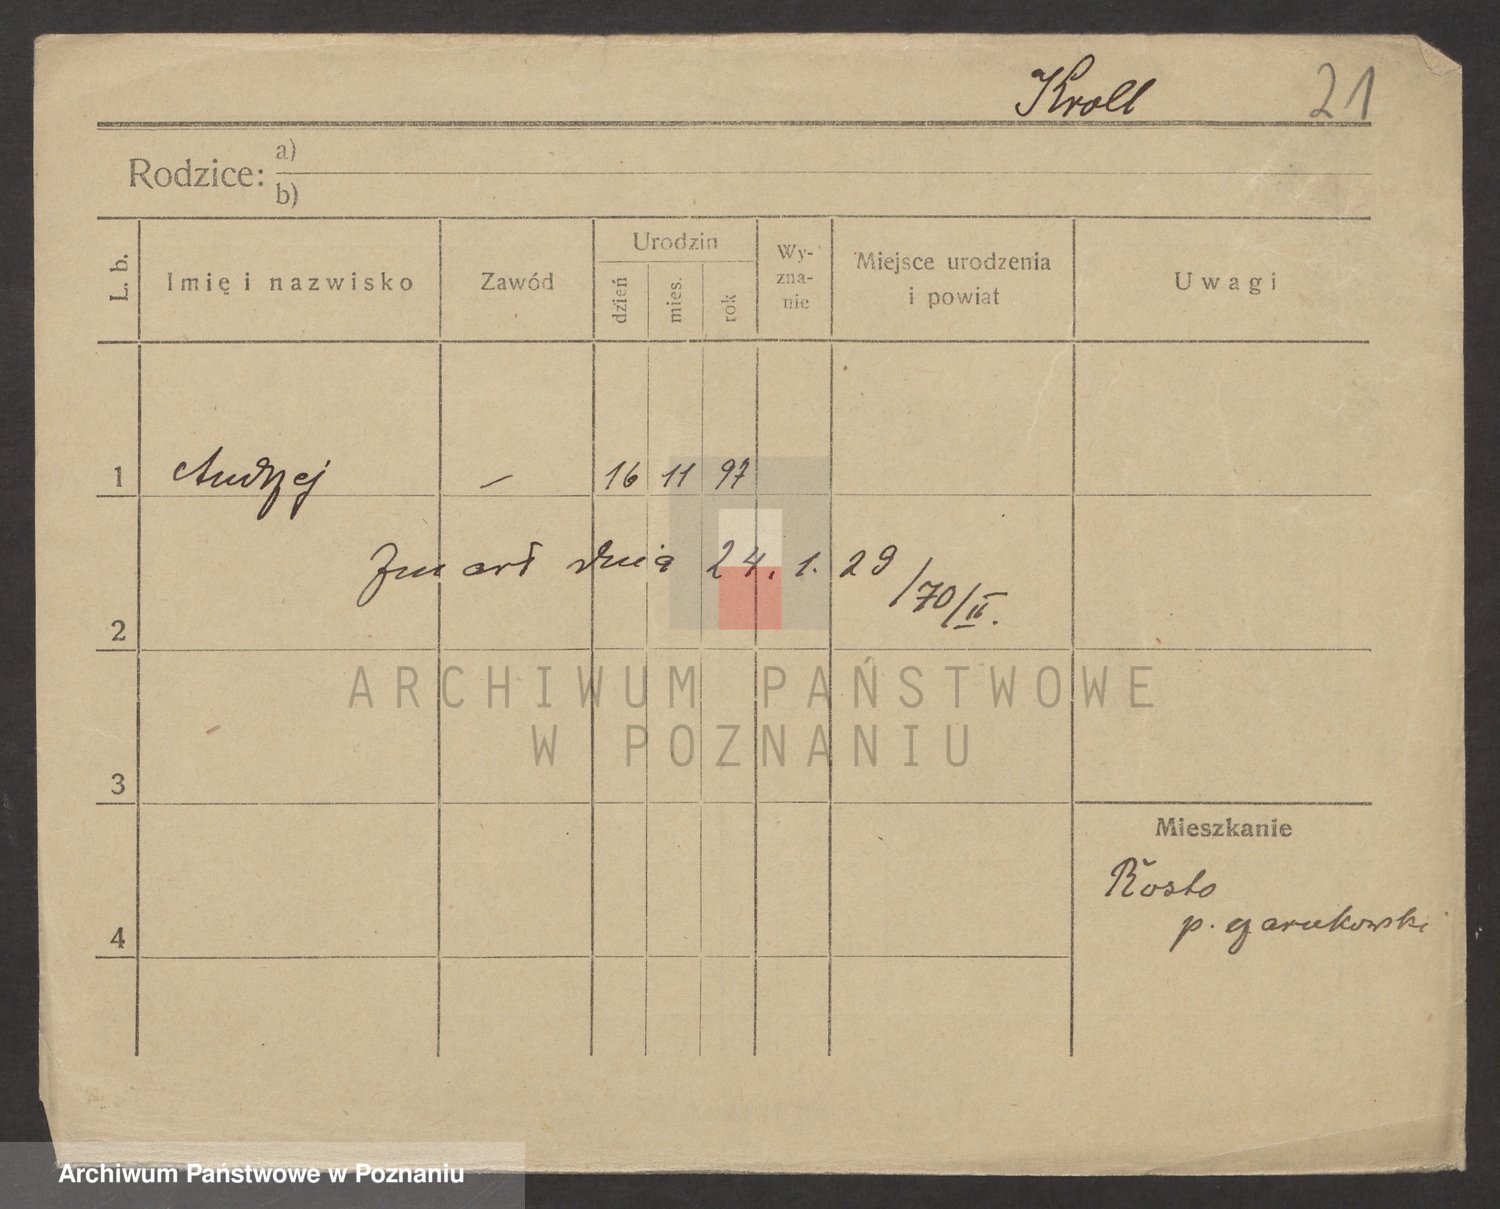 Kroll 21
Rodzice: a)
b)
L. b.
Imię i nazwisko
Zawód
Urodzin
dzień
mies.
rok
Wy-
zna-
nie
Miejsce urodzenia
i powiat
Uwagi
1 Andrzej — 16 11 97
Zmarł dnia 24. 1. 29 /70/II.
2
ARCHIWUM PAŃSTWOWE
W POZNANIU
3
Mieszkanie
p. czarnkowski
4
Archiwum Państwowe w Poznaniu